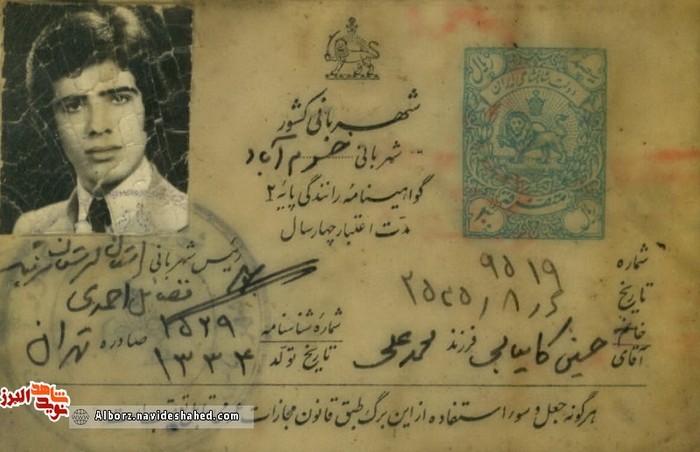 شهربانی کشور
شهربانی خرم آباد
گواهینامه رانندگی پایه ۲
مدت اعتبار چهار سال
دولت شاهنشاهی ایران
شماره ۹۵۱۹
تاریخ ۲۵۳۵/۸/۶
خانم
آقای حسین کامیابی فرزند محمد علی
رئیس شهربانی استان لرستان
احمدی
شماره شناسنامه ۲۵۲۹ صادره تهران
تاریخ تولد ۱۳۳۴
هرگونه جعل و سوء استفاده از این برگ طبق قانون مجازات
نوید شاهد البرز
Alborz.navideshahed.com